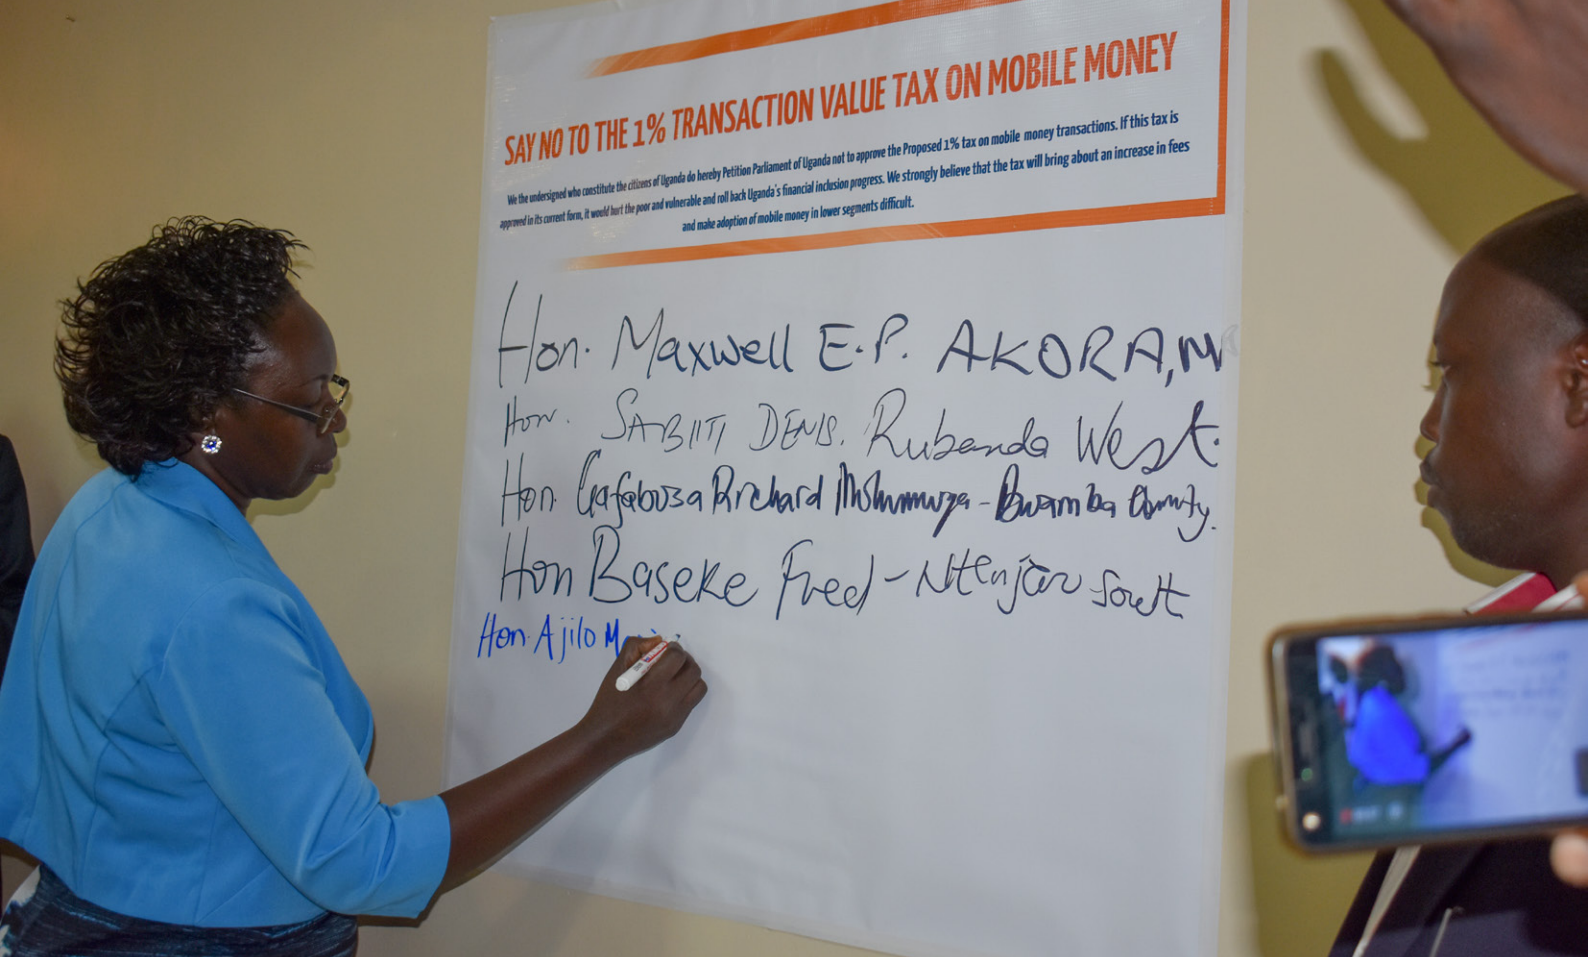 SAY NO TO THE 1% TRANSACTION VALUE TAX ON MOBILE MONEY
We the undersigned who constitute the citizens of Uganda do hereby Petition Parliament of Uganda not to approve the Proposed 1% tax on mobile money transactions. If this tax is
approved in its current form, it would hurt the poor and vulnerable and roll back Uganda's financial inclusion progress. We strongly believe that the tax will bring about an increase in fees
and make adoption of mobile money in lower segments difficult.
Hon. Maxwell E.P. AKORA, M
Hon. SABIITI DENIS. Rubanda West.
Hon. Gafabusa Richard Muhumuza - Bwamba County.
Hon Baseke Fred - Ntenjeru South
Hon. Ajilo